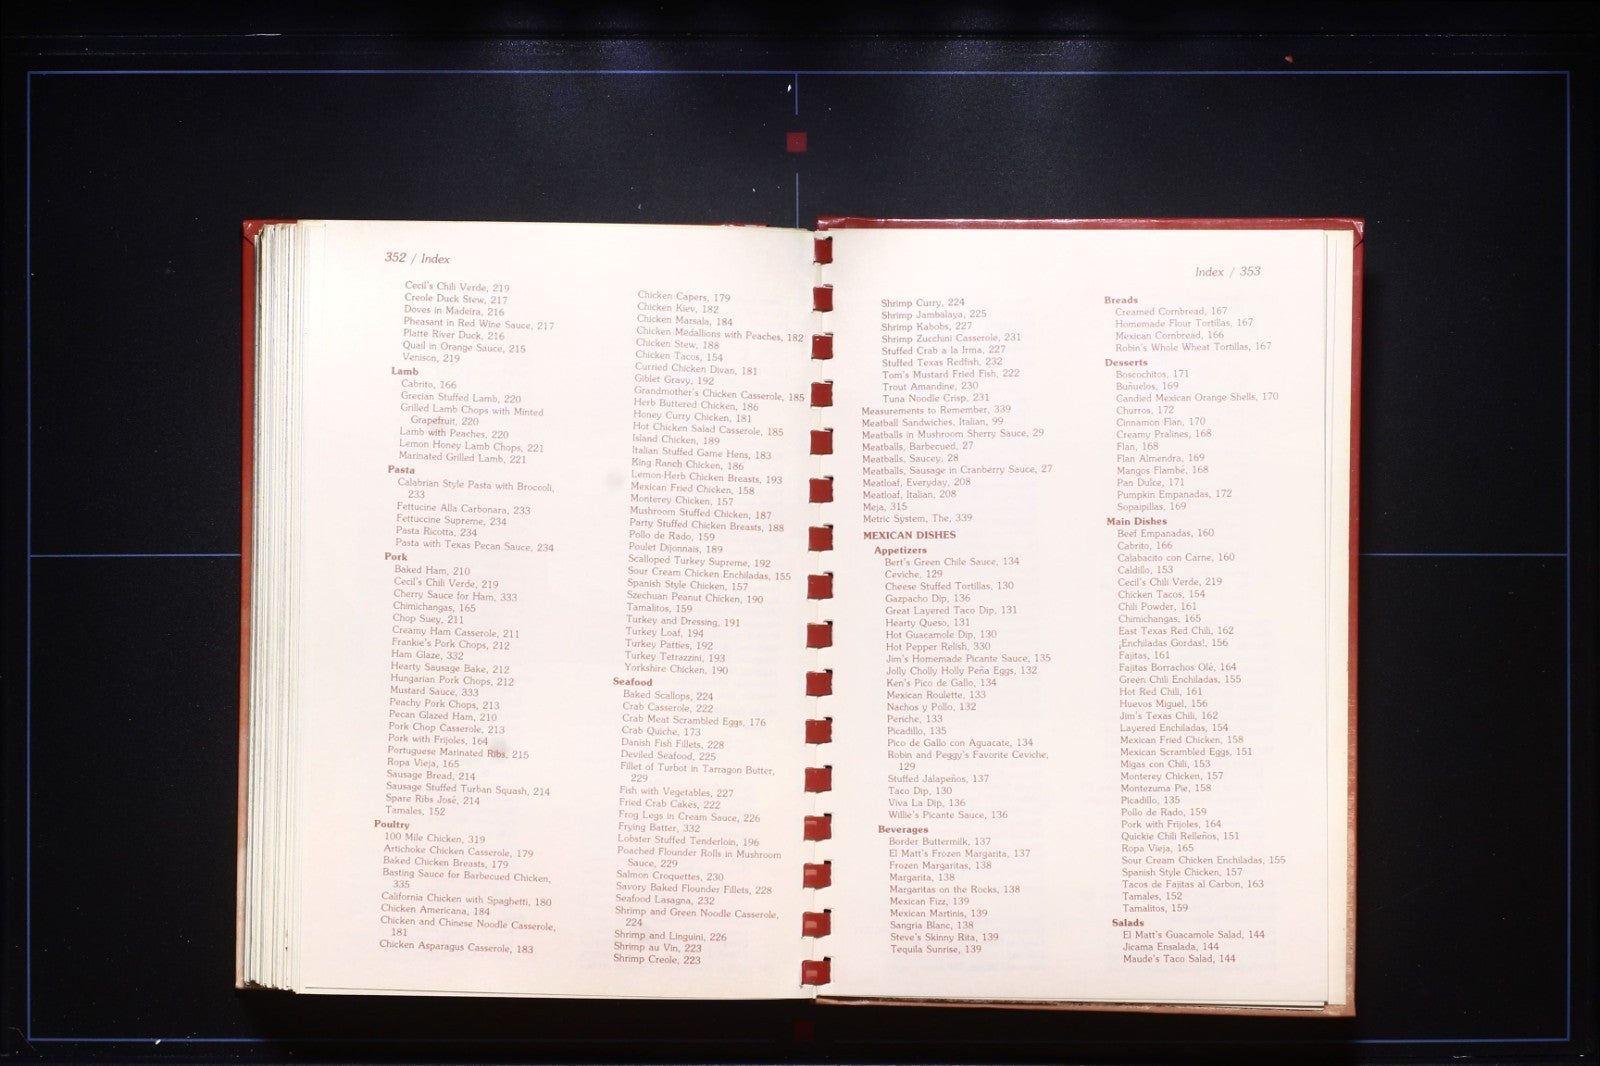 352 / Index
Cecil's Chili Verde, 219
Creole Duck Stew, 217
Doves in Madeira, 216
Pheasant in Red Wine Sauce, 217
Platte River Duck, 216
Quail in Orange Sauce, 215
Venison, 219
Lamb
Cabrito, 166
Grecian Stuffed Lamb, 220
Grilled Lamb Chops with Minted
Grapefruit, 220
Lamb with Peaches, 220
Lemon Honey Lamb Chops, 221
Marinated Grilled Lamb, 221
Pasta
Calabrian Style Pasta with Broccoli,
233
Fettucine Alla Carbonara, 233
Fettuccine Supreme, 234
Pasta Ricotta, 234
Pasta with Texas Pecan Sauce, 234
Pork
Baked Ham, 210
Cecil's Chili Verde, 219
Cherry Sauce for Ham, 333
Chimichangas, 165
Chop Suey, 211
Creamy Ham Casserole, 211
Frankie's Pork Chops, 212
Ham Glaze, 332
Hearty Sausage Bake, 212
Hungarian Pork Chops, 212
Mustard Sauce, 333
Peachy Pork Chops, 213
Pecan Glazed Ham, 210
Pork Chop Casserole, 213
Pork with Frijoles, 164
Portuguese Marinated Ribs, 215
Ropa Vieja, 165
Sausage Bread, 214
Sausage Stuffed Turban Squash, 214
Spare Ribs José, 214
Tamales, 152
Poultry
100 Mile Chicken, 319
Artichoke Chicken Casserole, 179
Baked Chicken Breasts, 179
Basting Sauce for Barbecued Chicken,
335
California Chicken with Spaghetti, 180
Chicken Americana, 184
Chicken and Chinese Noodle Casserole,
181
Chicken Asparagus Casserole, 183
Chicken Capers, 179
Chicken Kiev, 182
Chicken Marsala, 184
Chicken Medallions with Peaches, 182
Chicken Stew, 188
Chicken Tacos, 154
Curried Chicken Divan, 181
Giblet Gravy, 192
Grandmother's Chicken Casserole, 185
Herb Buttered Chicken, 186
Honey Curry Chicken, 181
Hot Chicken Salad Casserole, 185
Island Chicken, 189
Italian Stuffed Game Hens, 183
King Ranch Chicken, 186
Lemon-Herb Chicken Breasts, 193
Mexican Fried Chicken, 158
Monterey Chicken, 157
Mushroom Stuffed Chicken, 187
Party Stuffed Chicken Breasts, 188
Pollo de Rado, 159
Poulet Dijonnais, 189
Scalloped Turkey Supreme, 192
Sour Cream Chicken Enchiladas, 155
Spanish Style Chicken, 157
Szechuan Peanut Chicken, 190
Tamalitos, 159
Turkey and Dressing, 191
Turkey Loaf, 194
Turkey Patties, 192
Turkey Tetrazzini, 193
Yorkshire Chicken, 190
Seafood
Baked Scallops, 224
Crab Casserole, 222
Crab Meat Scrambled Eggs, 176
Crab Quiche, 173
Danish Fish Fillets, 228
Deviled Seafood, 225
Fillet of Turbot in Tarragon Butter,
229
Fish with Vegetables, 227
Fried Crab Cakes, 222
Frog Legs in Cream Sauce, 226
Frying Batter, 332
Lobster Stuffed Tenderloin, 196
Poached Flounder Rolls in Mushroom
Sauce, 229
Salmon Croquettes, 230
Savory Baked Flounder Fillets, 228
Seafood Lasagna, 232
Shrimp and Green Noodle Casserole,
224
Shrimp and Linguini, 226
Shrimp au Vin, 223
Shrimp Creole, 223
Index / 353
Shrimp Curry, 224
Shrimp Jambalaya, 225
Shrimp Kabobs, 227
Shrimp Zucchini Casserole, 231
Stuffed Crab a la Irma, 227
Stuffed Texas Redfish, 232
Tom's Mustard Fried Fish, 222
Trout Amandine, 230
Tuna Noodle Crisp, 231
Measurements to Remember, 339
Meatball Sandwiches, Italian, 99
Meatballs in Mushroom Sherry Sauce, 29
Meatballs, Barbecued, 27
Meatballs, Saucey, 28
Meatballs, Sausage in Cranberry Sauce, 27
Meatloaf, Everyday, 208
Meatloaf, Italian, 208
Meja, 315
Metric System, The, 339
MEXICAN DISHES
Appetizers
Bert's Green Chile Sauce, 134
Ceviche, 129
Cheese Stuffed Tortillas, 130
Gazpacho Dip, 136
Great Layered Taco Dip, 131
Hearty Queso, 131
Hot Guacamole Dip, 130
Hot Pepper Relish, 330
Jim's Homemade Picante Sauce, 135
Jolly Cholly Holly Peña Eggs, 132
Ken's Pico de Gallo, 134
Mexican Roulette, 133
Nachos y Pollo, 132
Periche, 133
Picadillo, 135
Pico de Gallo con Aguacate, 134
Robin and Peggy's Favorite Ceviche,
129
Stuffed Jalapeños, 137
Taco Dip, 130
Viva La Dip, 136
Willie's Picante Sauce, 136
Beverages
Border Buttermilk, 137
El Matt's Frozen Margarita, 137
Frozen Margaritas, 138
Margarita, 138
Margaritas on the Rocks, 138
Mexican Fizz, 139
Mexican Martinis, 139
Sangria Blanc, 138
Steve's Skinny Rita, 139
Tequila Sunrise, 139
Breads
Creamed Cornbread, 167
Homemade Flour Tortillas, 167
Mexican Cornbread, 166
Robin's Whole Wheat Tortillas, 167
Desserts
Boscochitos, 171
Buñuelos, 169
Candied Mexican Orange Shells, 170
Churros, 172
Cinnamon Flan, 170
Creamy Pralines, 168
Flan, 168
Flan Almendra, 169
Mangos Flambé, 168
Pan Dulce, 171
Pumpkin Empanadas, 172
Sopaipillas, 169
Main Dishes
Beef Empanadas, 160
Cabrito, 166
Calabacito con Carne, 160
Caldillo, 153
Cecil's Chili Verde, 219
Chicken Tacos, 154
Chili Powder, 161
Chimichangas, 165
East Texas Red Chili, 162
¡Enchiladas Gordas!, 156
Fajitas, 161
Fajitas Borrachos Olé, 164
Green Chili Enchiladas, 155
Hot Red Chili, 161
Huevos Miguel, 156
Jim's Texas Chili, 162
Layered Enchiladas, 154
Mexican Fried Chicken, 158
Mexican Scrambled Eggs, 151
Migas con Chili, 153
Monterey Chicken, 157
Montezuma Pie, 158
Picadillo, 135
Pollo de Rado, 159
Pork with Frijoles, 164
Quickie Chili Relleños, 151
Ropa Vieja, 165
Sour Cream Chicken Enchiladas, 155
Spanish Style Chicken, 157
Tacos de Fajitas al Carbon, 163
Tamales, 152
Tamalitos, 159
Salads
El Matt's Guacamole Salad, 144
Jicama Ensalada, 144
Maude's Taco Salad, 144